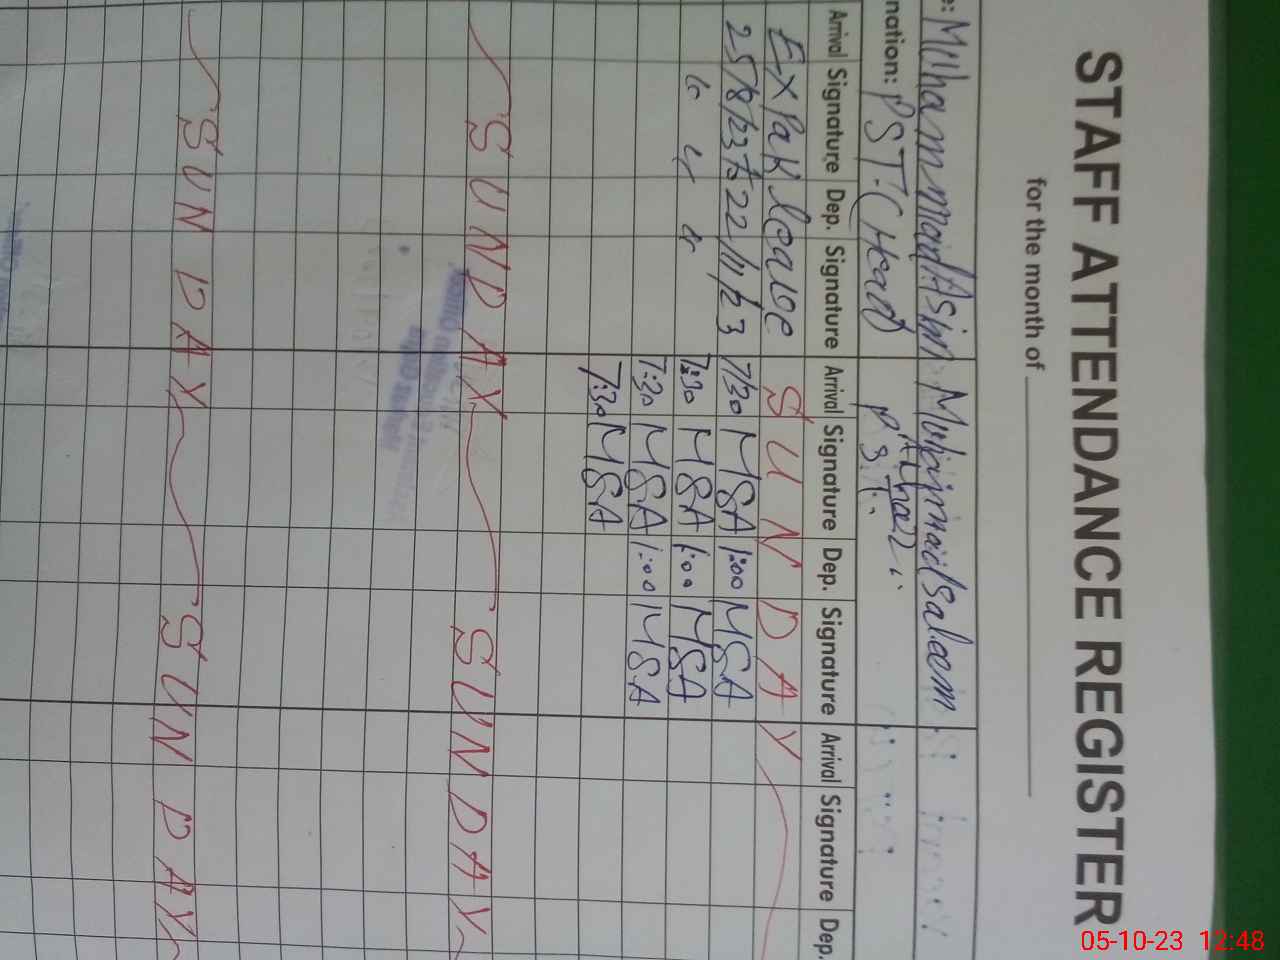 STAFF ATTENDANCE REGISTER
for the month of
e: Muhammad Asim Muhammad Saleem
nation: PST (Head) P.S.T.
Arrival Signature Dep. Signature Arrival Signature Dep. Signature Arrival Signature Dep.
Ex Pak leave SUNDAY
25/8/23 to 22/11/23 7:30 MSA 1:00 MSA
" " " 7:30 MSA 1:00 MSA
7:30 MSA 1:00 MSA
7:30 MSA
SUNDAY SUNDAY
SUNDAY SUNDAY
05-10-23 12:48